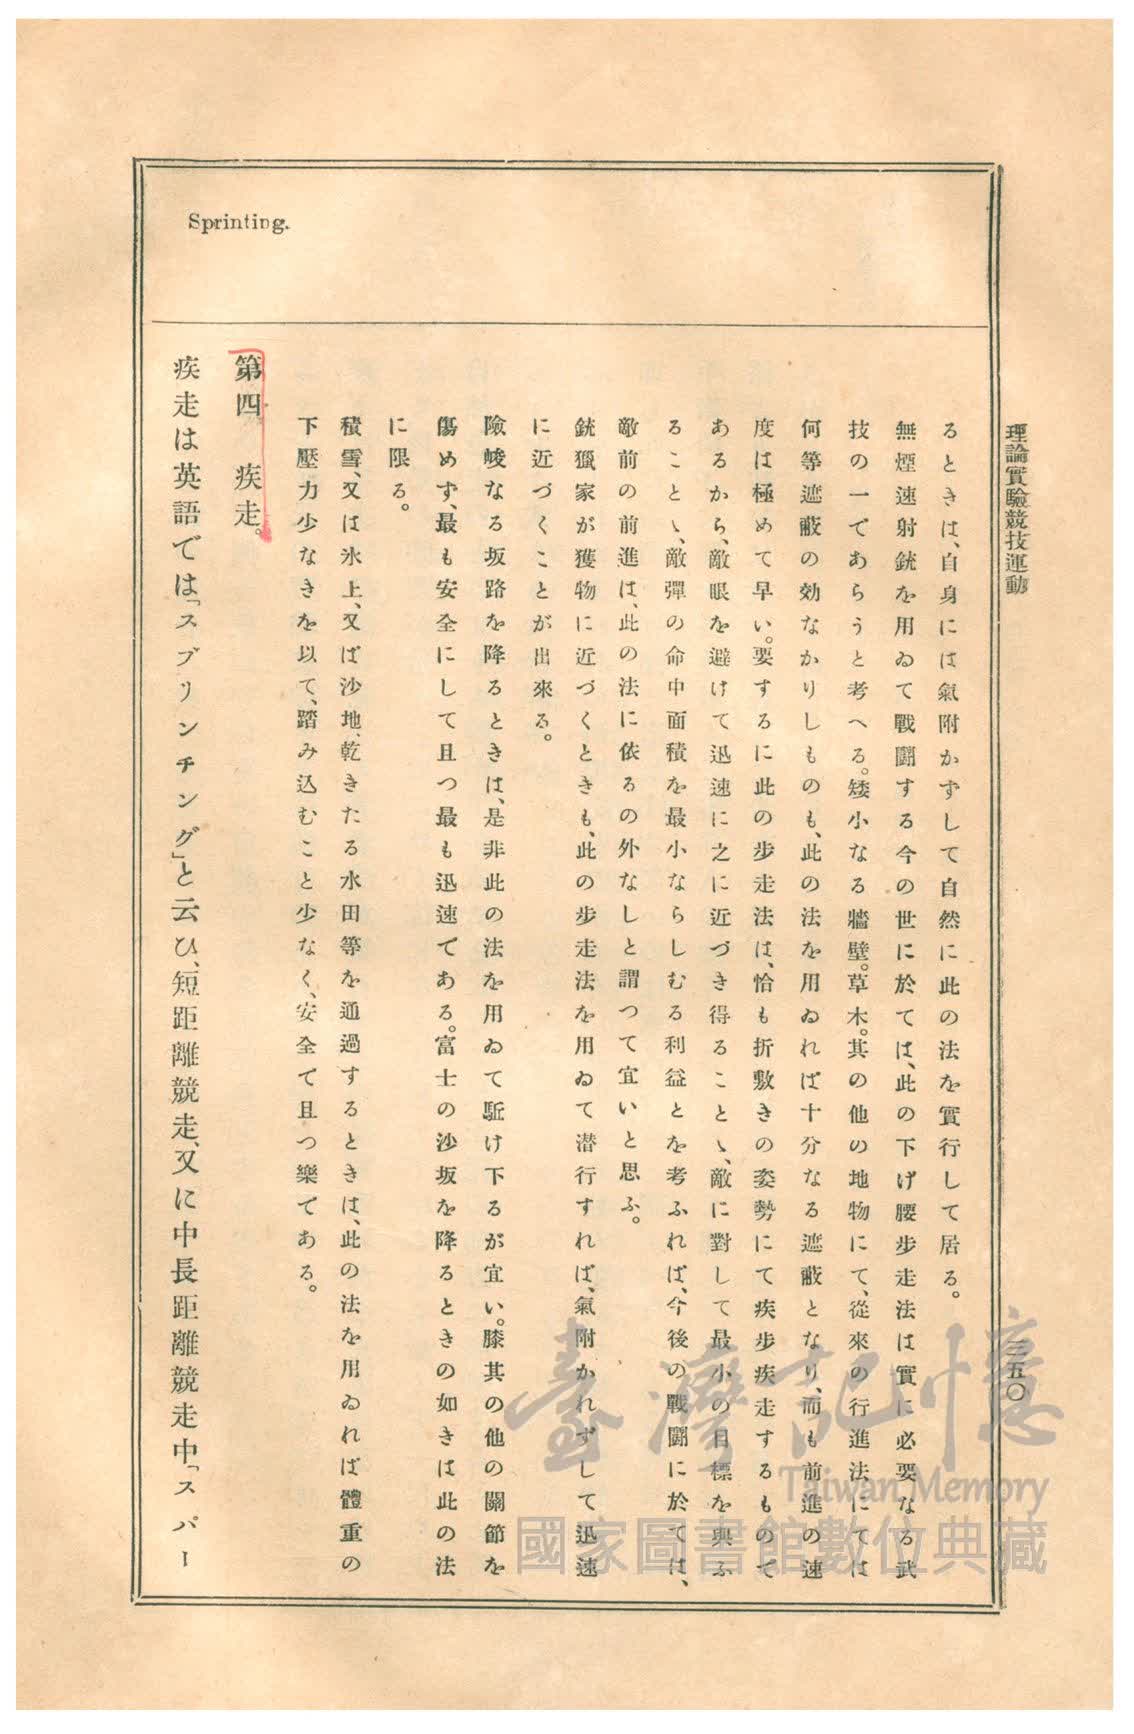 理論實驗競技運動
三五〇
Sprinting.
るときは、自身には氣附かずして自然に此の法を實行して居る。
無煙速射銃を用ゐて戰鬪する今の世に於ては、此の下げ腰步走法は實に必要なる武
技の一であらうと考へる。矮小なる牆壁。草木。其の他の地物にて、從來の行進法にては
何等遮蔽の効なかりしものも、此の法を用ゐれば十分なる遮蔽となり、而も前進の速
度は極めて早い。要するに此の步走法は、恰も折敷きの姿勢にて疾步疾走するもので
あるから、敵眼を避けて迅速に之に近づき得ることゝ、敵に對して最小の目標を與ふ
ることゝ、敵彈の命中面積を最小ならしむる利益とを考ふれば、今後の戰鬪に於ては、
敵前の前進は、此の法に依るの外なしと謂つて宜いと思ふ。
銃獵家が獲物に近づくときも、此の步走法を用ゐて潜行すれば、氣附かれずして迅速
に近づくことが出來る。
險峻なる坂路を降るときは、是非此の法を用ゐて駈け下るが宜い。膝其の他の關節を
傷めず、最も安全にして且つ最も迅速である。富士の沙坂を降るときの如きは此の法
に限る。
積雪、又は氷上、又ば沙地、乾きたる水田等を通過するときは、此の法を用ゐれば體重の
下壓力少なきを以て、踏み込むこと少なく、安全で且つ樂である。
第四 疾走。
疾走は英語では「スプリンチング」と云ひ、短距離競走、又に中長距離競走中「スパー
臺灣記憶
Taiwan Memory
國家圖書館數位典藏